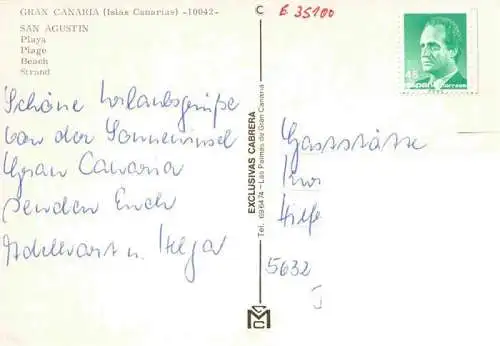 GRAN CANARIA (Islas Canarias) -10042-
SAN AGUSTIN
Playa
Plage
Beach
Strand
Schöne Urlaubsgrüße
von der Sonneninsel
Gran Canaria
senden Euch
Adelbert u. Helga
EXCLUSIVAS CABRERA
Tel. 696474 - Las Palmas de Gran Canaria
C
E 35100
45
España correos
Gaststätte
Hilfe
5632